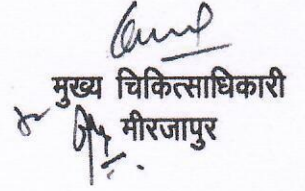 मुख्य चिकित्साधिकारी
मीरजापुर